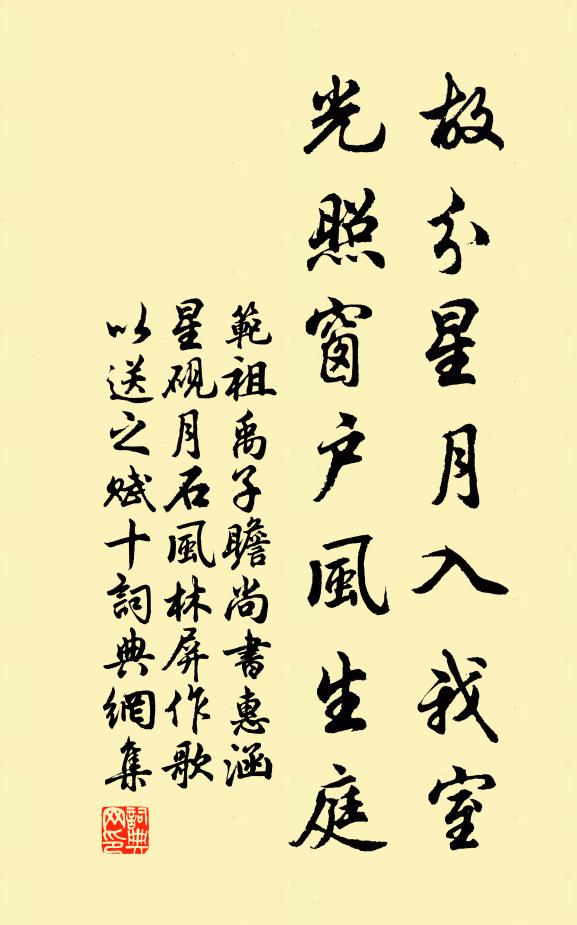 故分星月入我室
光照窗户風生庭
範祖禹子瞻尚書惠涵
星硯月石風林屏作歌
以送之賦十詞典網集
詞典網印